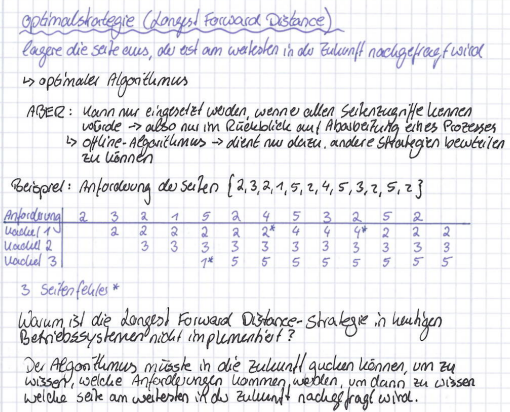 Optimalstrategie (Longest Forward Distance)
lagere die Seite aus, die erst am weitesten in der Zukunft nachgefragt wird
↳ optimaler Algorithmus
ABER: kann nur eingesetzt werden, wenn er allen Seitenzugriffe kennen
würde → also nur im Rückblick auf Abarbeitung eines Prozesses
↳ offline-Algorithmus → dient nur dazu, andere Strategien beurteilen
zu können
Beispiel: Anforderung der Seiten {2,3,2,1,5,2,4,5,3,2,5,2}
Anforderung 2 3 2 1 5 2 4 5 3 2 5 2
Kachel 1 2 2 2 2 2 2* 4 4 4* 2 2 2
Kachel 2 3 3 3 3 3 3 3 3 3 3
Kachel 3 1* 5 5 5 5 5 5 5
3 Seitenfehler *
Warum ist die Longest Forward Distance-Strategie in heutigen
Betriebssystemen nicht implementiert?
Der Algorithmus müsste in die Zukunft gucken können, um zu
wissen, welche Anforderungen kommen werden, um dann zu wissen
welche Seite am weitesten in der Zukunft nachgefragt wird.